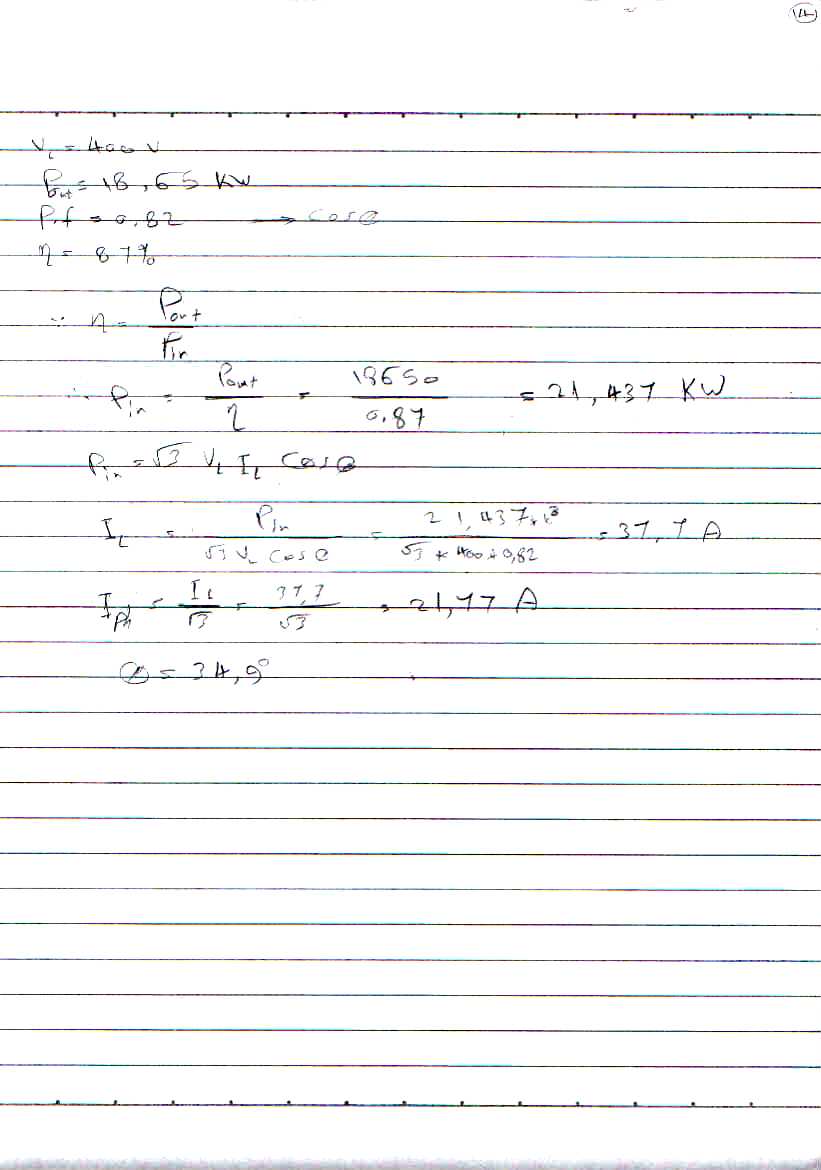 14
V_L = 400 V
P_out = 18,65 KW
P.f = 0,82 → cos θ
η = 87%
∵ η = P_out / P_in
∴ P_in = P_out / η = 18650 / 0,87 = 21,437 KW
P_in = √3 V_L I_L Cos θ
I_L = P_in / √3 V_L cos θ = 21,437*10³ / √3 * 400 * 0,82 = 37,7 A
I_ph = I_L / √3 = 37,7 / √3 = 21,77 A
θ = 34,9°